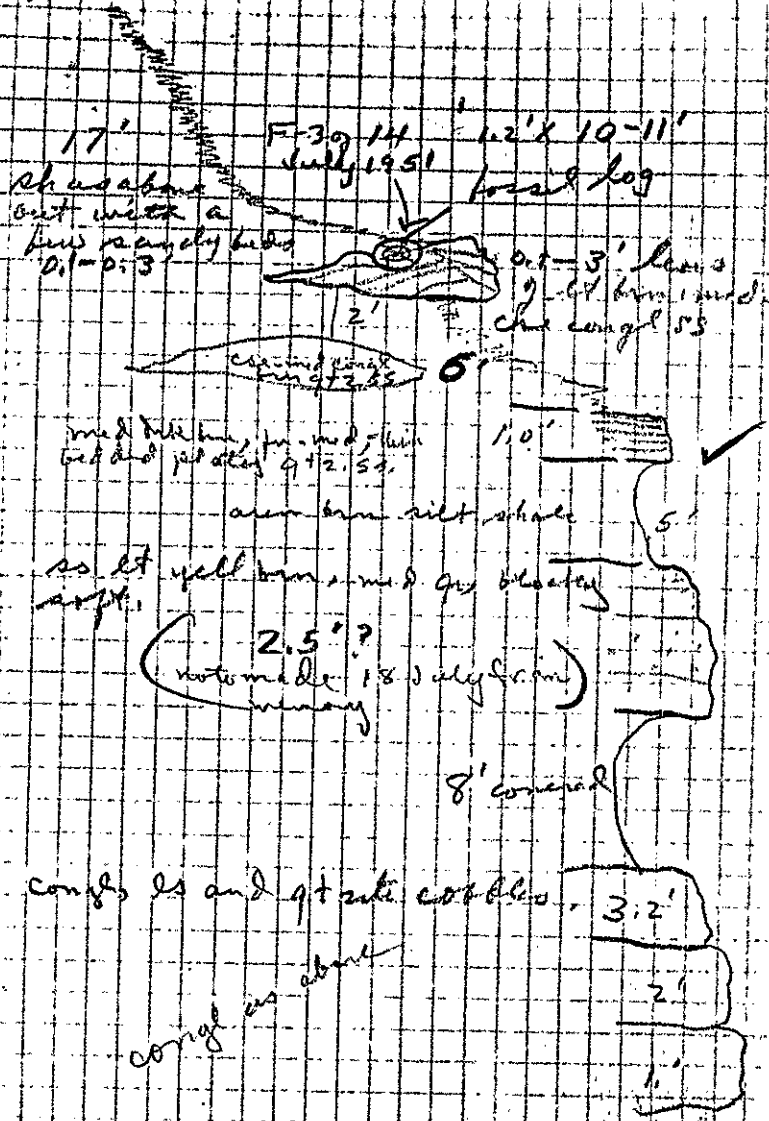 17'
F-39 14
July 1951
1.2' x 10-11'
fossil log
sh as above
but with a
few sandy beds
0.1-0.3'
0.1-3' lens
of lt brn, med
congl ss
2'
congl
qtz ss
6'
1.0'
med brn, med, thin
bedded platey qtz. ss.
brn silt shale
5'
ss lt yell brn, med gr, blocky
soft.
2.5'?
note made 18 July from
memory
8' covered
congl, ls and qtzite cobbles.
3.2'
congl as above
2'
1.'